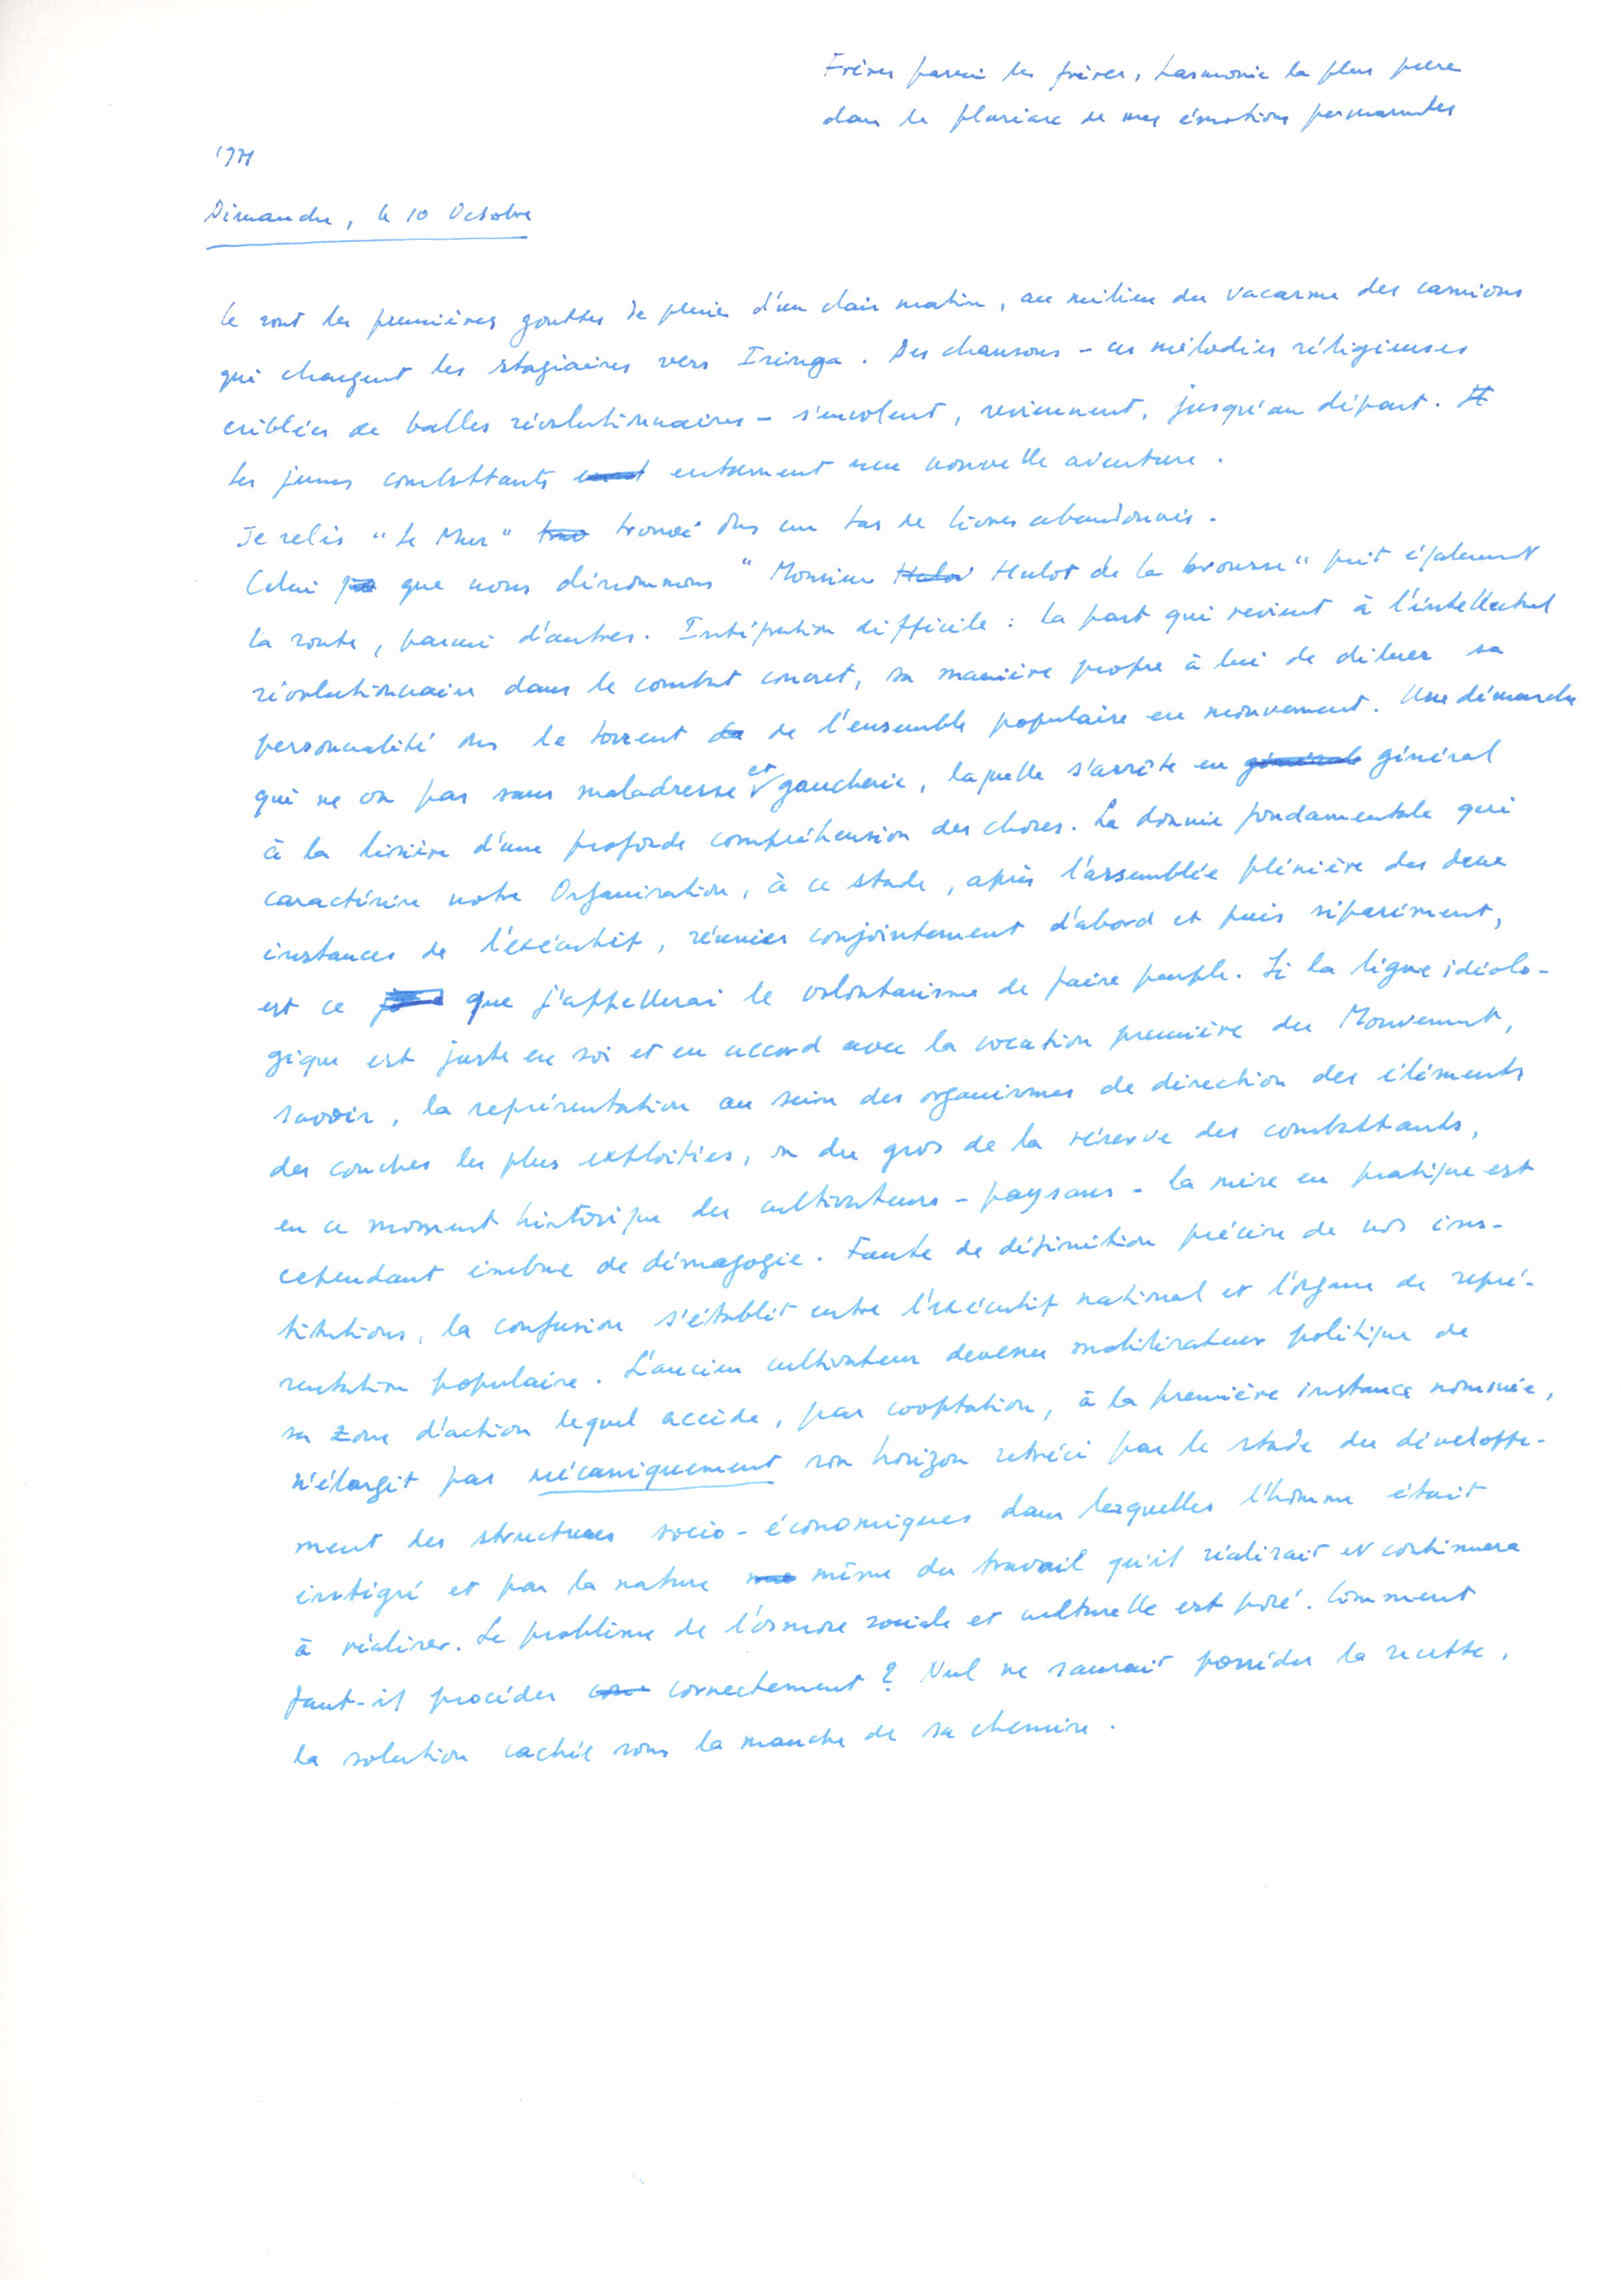 Frères parmi les frères, harmonie la plus pure
dans le de mes émotions permanentes
1971
Dimanche, le 10 Octobre
Ce sont les premières gouttes de pluie d'un clair matin, au milieu du vacarme des camions
qui chargent les stagiaires vers Iringa. Des chansons - ces mélodies réligieuses
criblées de balles révolutionnaires - s'envolent, reviennent, jusqu'au départ.
Les jeunes combattants entament une nouvelle aventure.
Je relis "Le Mur" trouvé dans un tas de livres abandonnés.
Celui que nous dénommons "Monsieur Hulot de la brousse" prit également
la route, parmi d'autres. Intégration difficile : la part qui revient à l'intellectuel
révolutionnaire dans le combat concret, sa manière propre à lui de diluer sa
personnalité dans le torrent de l'ensemble populaire en mouvement. Une démarche
qui ne va pas sans maladresse et gaucherie, laquelle s'arrête en général
à la lisière d'une profonde compréhension des choses. La donnée fondamentale qui
caractérise notre Organisation, à ce stade, après l'assemblée plénière des deux
instances de l'exécutif, réunies conjointement d'abord et puis séparément,
est ce que j'appellerai le volontarisme de faire peuple. Si la ligne idéolo-
gique est juste en soi et en accord avec la vocation première du Mouvement,
savoir, la représentation au sein des organismes de direction des éléments
des couches les plus exploitées, ou du gros de la réserve des combattants,
en ce moment historique des cultivateurs - paysans - la mise en pratique est
cependant imbue de démagogie. Faute de définition précise de nos ins-
titutions, la confusion s'établit entre l'exécutif national et l'organe de repré-
sentation populaire. L'ancien cultivateur devenu mobilisateur politique de
sa zone d'action lequel accède, par cooptation, à la première instance nommée,
n'élargit pas mécaniquement son horizon rétréci par le stade du développe-
ment des structures socio-économiques dans lesquelles l'homme était
intégré et par la nature même du travail qu'il réalisait et continuera
à réaliser. Le problème de l'osmose sociale et culturelle est posé. Comment
faut-il procéder correctement ? Nul ne saurait posséder la recette,
la solution cachée sous la manche de sa chemise.